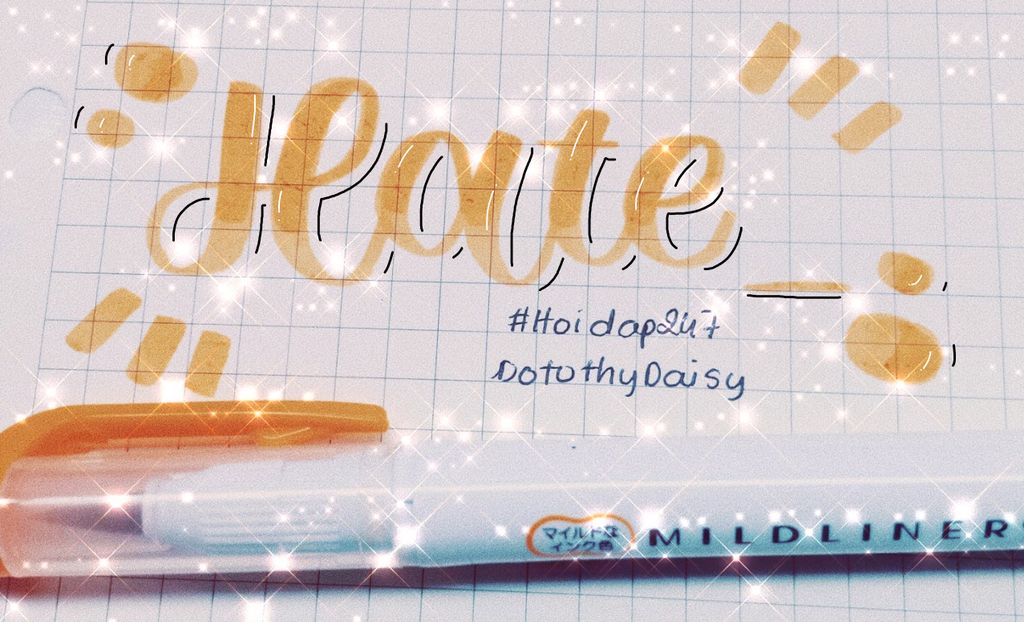 Hate_
#Hoidap247
DotothyDaisy
マイルドな
インク色
MILDLINER